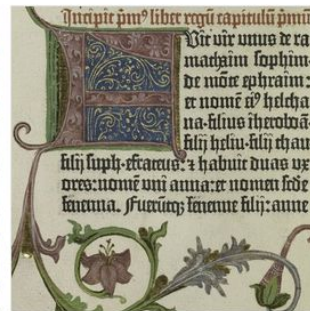 Incipit p̄mꝰ liber regū capitulū p̄mū
FVit vir vnus de ra
mathaim sophim·
de mōte ephraim:
et nomē eiꝰ helcha
na·filius iheroboā·
filij heliu·filij thau
filij suph·effrateus: ⁊ habuit duas vx
ores: nomē vni anna: et nomen scd̄e
fenenna. Fuerūtqꝫ fenenne filij: anne